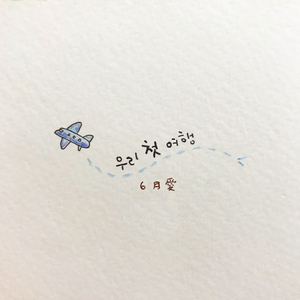 우리 첫 여행
6月愛